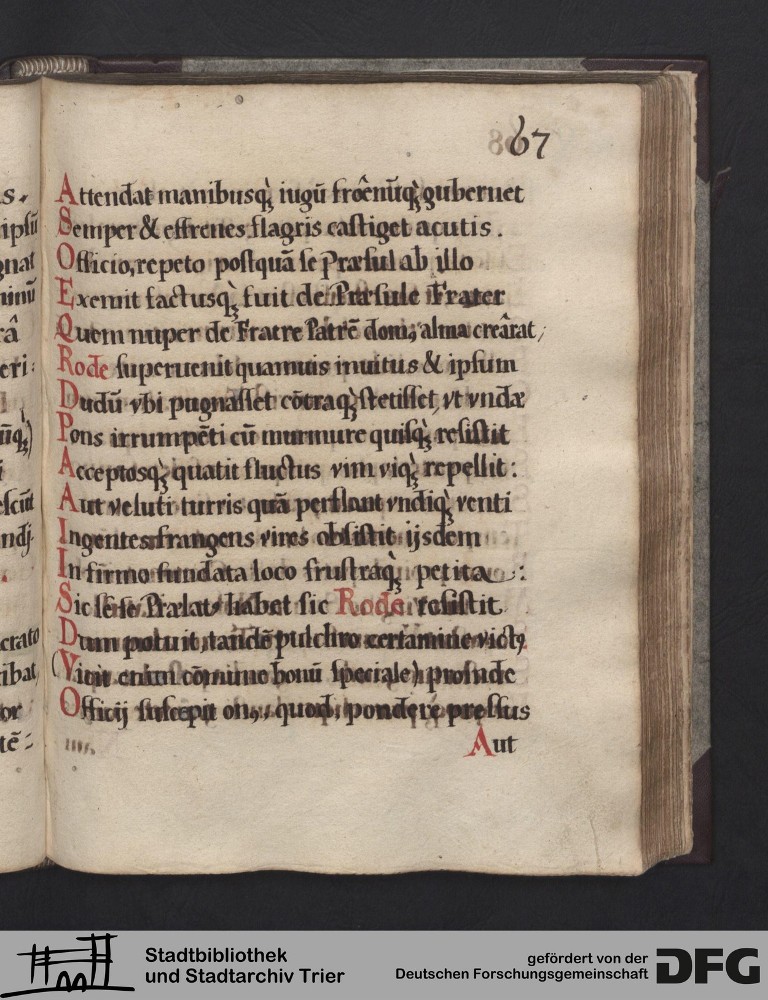 67
Attendat manibusq̀ꝫ iugū froênūq̀ꝫ gubernet
Semper & effrenes flagris castiget acutis.
Officio, repeto postquā se Præsul ab illo
Exemit factusq̀ꝫ fuit de Præsule Frater
Quem nuper de Fratre Patrē domꝰ alma creârat,
Rode superuenit quamuis inuitus & ipsum
Dudū vbi pugnasset cōtraq̀ꝫ stetisset, vt vndæ
Pons irrumpēti cū murmure quisq̀ꝫ resistit
Acceptosq̀ꝫ quatit fluctus vim viq̀ꝫ repellit:
Aut veluti turris quā perflant vndiq̀ꝫ venti
Ingentes frangens vires obsistit ijsdem
In firmo fundata loco frustraq̀ꝫ petita:
Sic sese Prælatꝰ habet sic Rode resistit
Dum potuit, tandē pulchro certamine victꝰ
(Vicit enim cōmune bonū speciale) proinde
Officij suscepit onꝰ, quod, pondere pressus
Aut
Stadtbibliothek
und Stadtarchiv Trier
gefördert von der
Deutschen Forschungsgemeinschaft
DFG